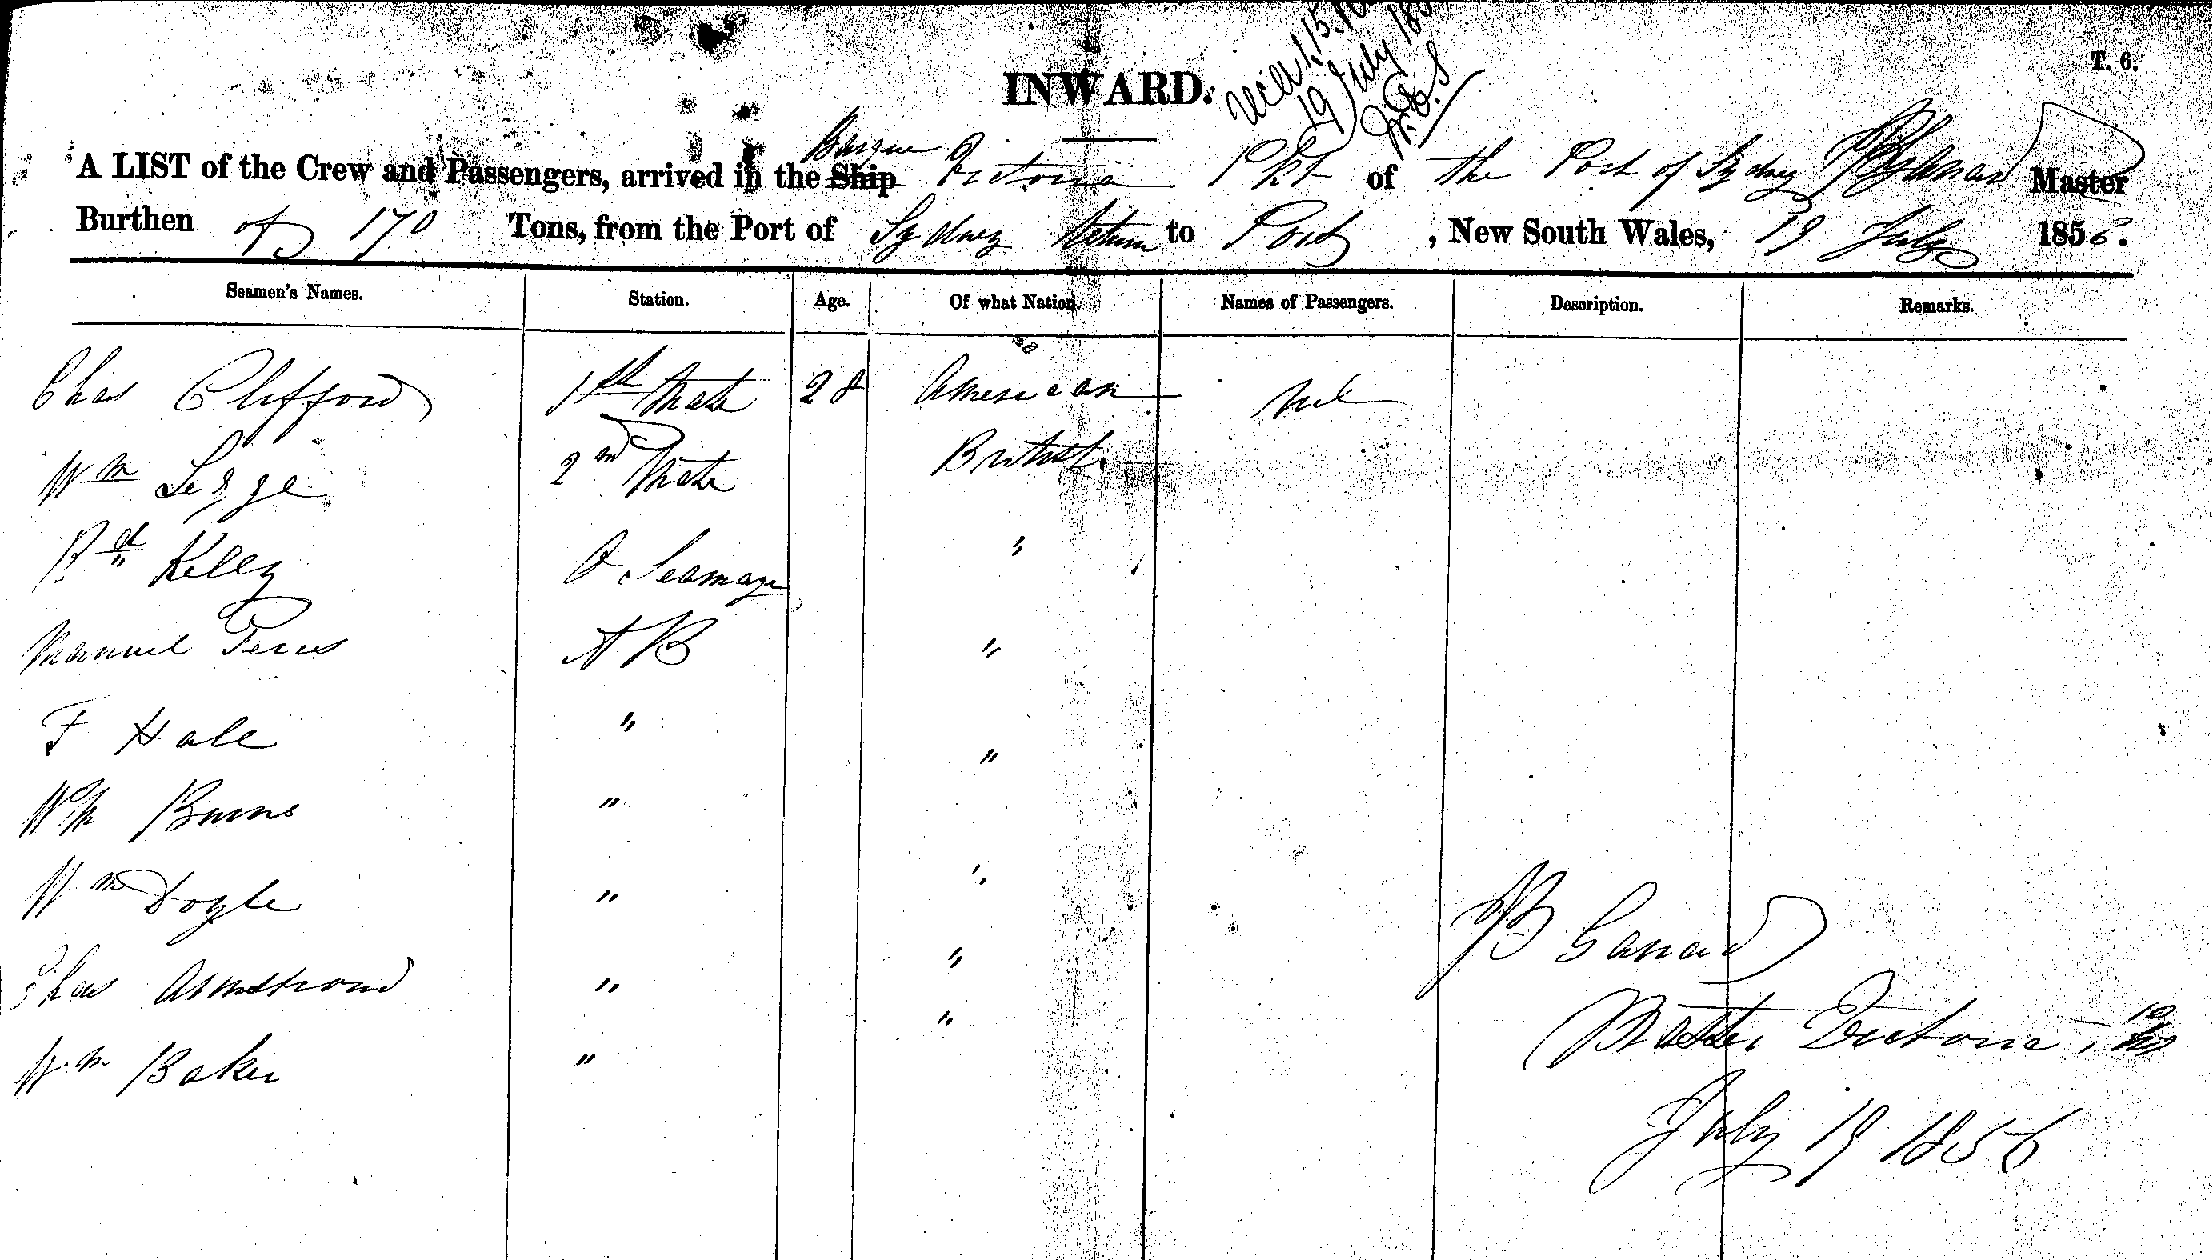 T. 6.
INWARD.
19 July
Barque
A LIST of the Crew and Passengers, arrived in the Ship Victoria Pkt of the Port of Sydney Master
Burthen of 170 Tons, from the Port of Sydney Return to Port, New South Wales, 19 July 1856.
Seamen's Names. Station. Age. Of what Nation. Names of Passengers. Description. Remarks.
Chas Clifford 1st Mate 28 American Nil
Wm Legge 2nd Mate British
Rd Kelly O Seaman "
Manuel A B "
F Hall " "
Wm Burns "
Wm Doyle " "
Chas Armstrong " "
Wm Baker " "
JB Ganard
Master Victoria
July 19 1856